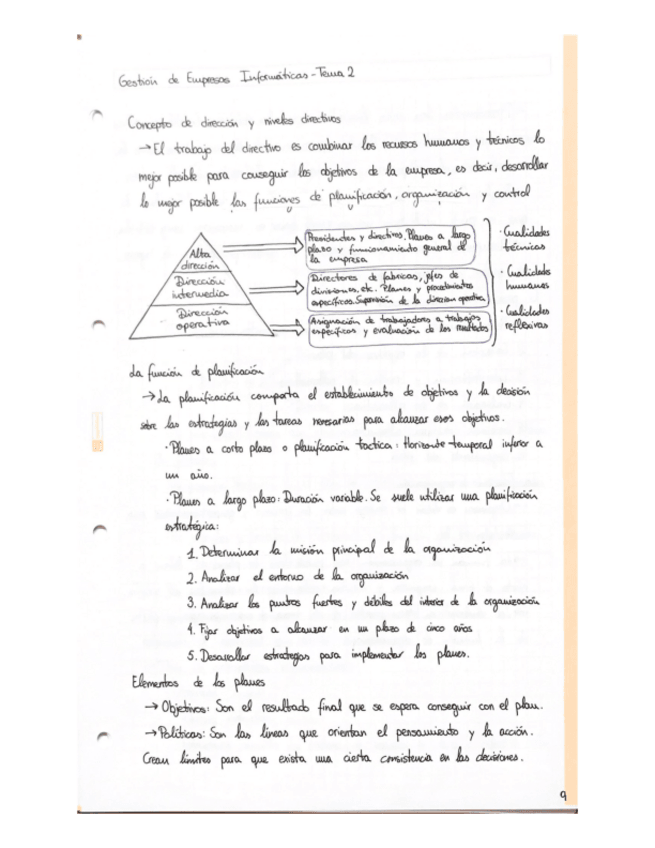 Gestión de Empresas Informáticas - Tema 2
Concepto de dirección y niveles directivos
→ El trabajo del directivo es combinar los recursos humanos y técnicos lo
mejor posible para conseguir los objetivos de la empresa, es decir, desarrollar
lo mejor posible las funciones de planificación, organización y control
Alta
dirección
Presidentes y directivos. Planes a largo
plazo y funcionamiento general de
la empresa
Dirección
intermedia
Directores de fabricas, jefes de
divisiones, etc. Planes y procedimientos
específicos. Supervisión de la direccion operativa
Dirección
operativa
Asignación de trabajadores a trabajos
específicos y evaluación de los resultados
· Cualidades
técnicas
· Cualidades
humanas
· Cualidades
reflexivas
La función de planificación
→ La planificación comporta el establecimiento de objetivos y la decisión
sobre las estrategias y las tareas necesarias para alcanzar esos objetivos.
· Planes a corto plazo o planificación tactica: Horizonte temporal inferior a
un año.
· Planes a largo plazo: Duración variable. Se suele utilizar una planificación
estratégica:
1. Determinar la misión principal de la organización
2. Analizar el entorno de la organización
3. Analizar los puntos fuertes y débiles del interior de la organización
4. Fijar objetivos a alcanzar en un plazo de cinco años
5. Desarrollar estrategias para implementar los planes.
Elementos de los planes
→ Objetivos: Son el resultado final que se espera conseguir con el plan.
→ Políticas: Son las líneas que orientan el pensamiento y la acción.
Crean límites para que exista una cierta consistencia en las decisiones.
9